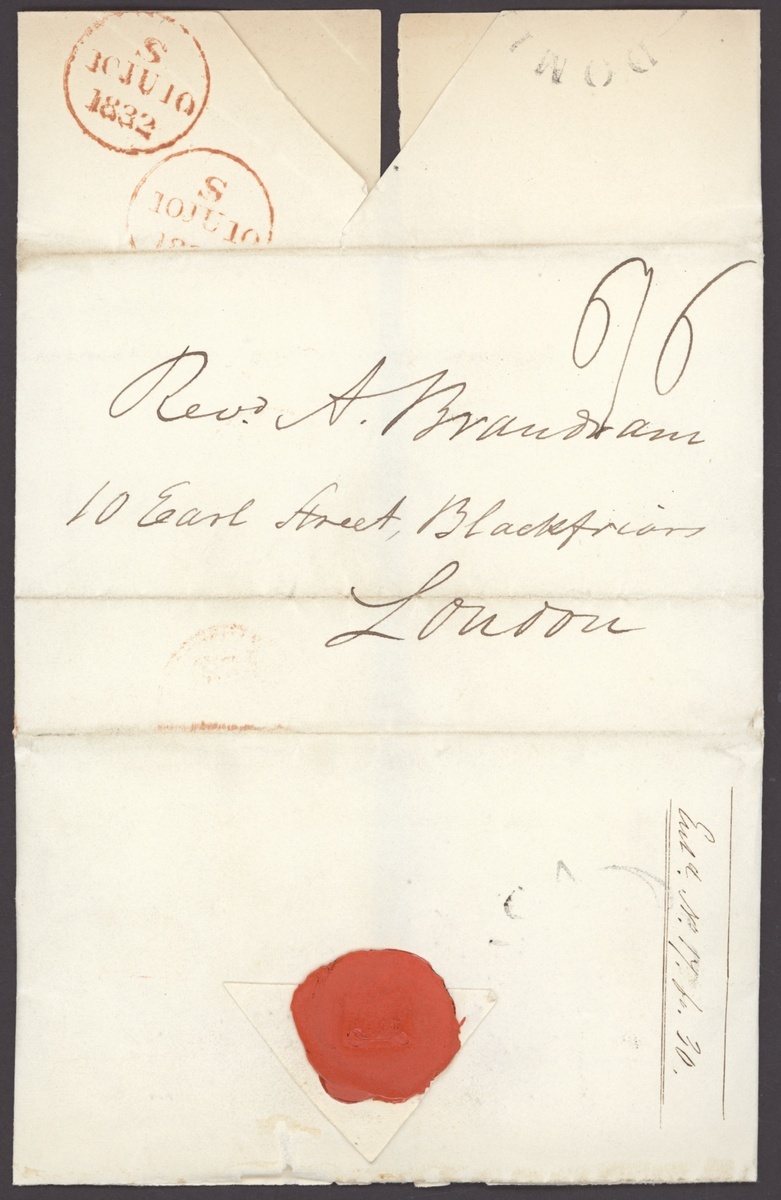 S
10JU10
1832
DOM
S
10JU10
6/6
Revd. A. Brandram
10 Earl Street, Blackfriars
London
Entd. No. 17. fo. 30.